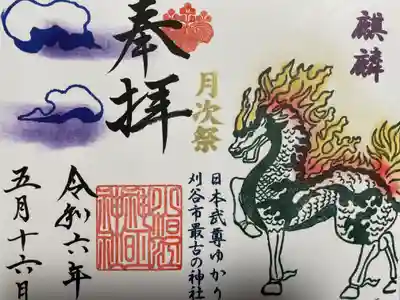 麒麟
日本武尊ゆかり
刈谷市最古の神社
月次祭
奉拝
小垣江
神明
神社
令和六年
五月十六日